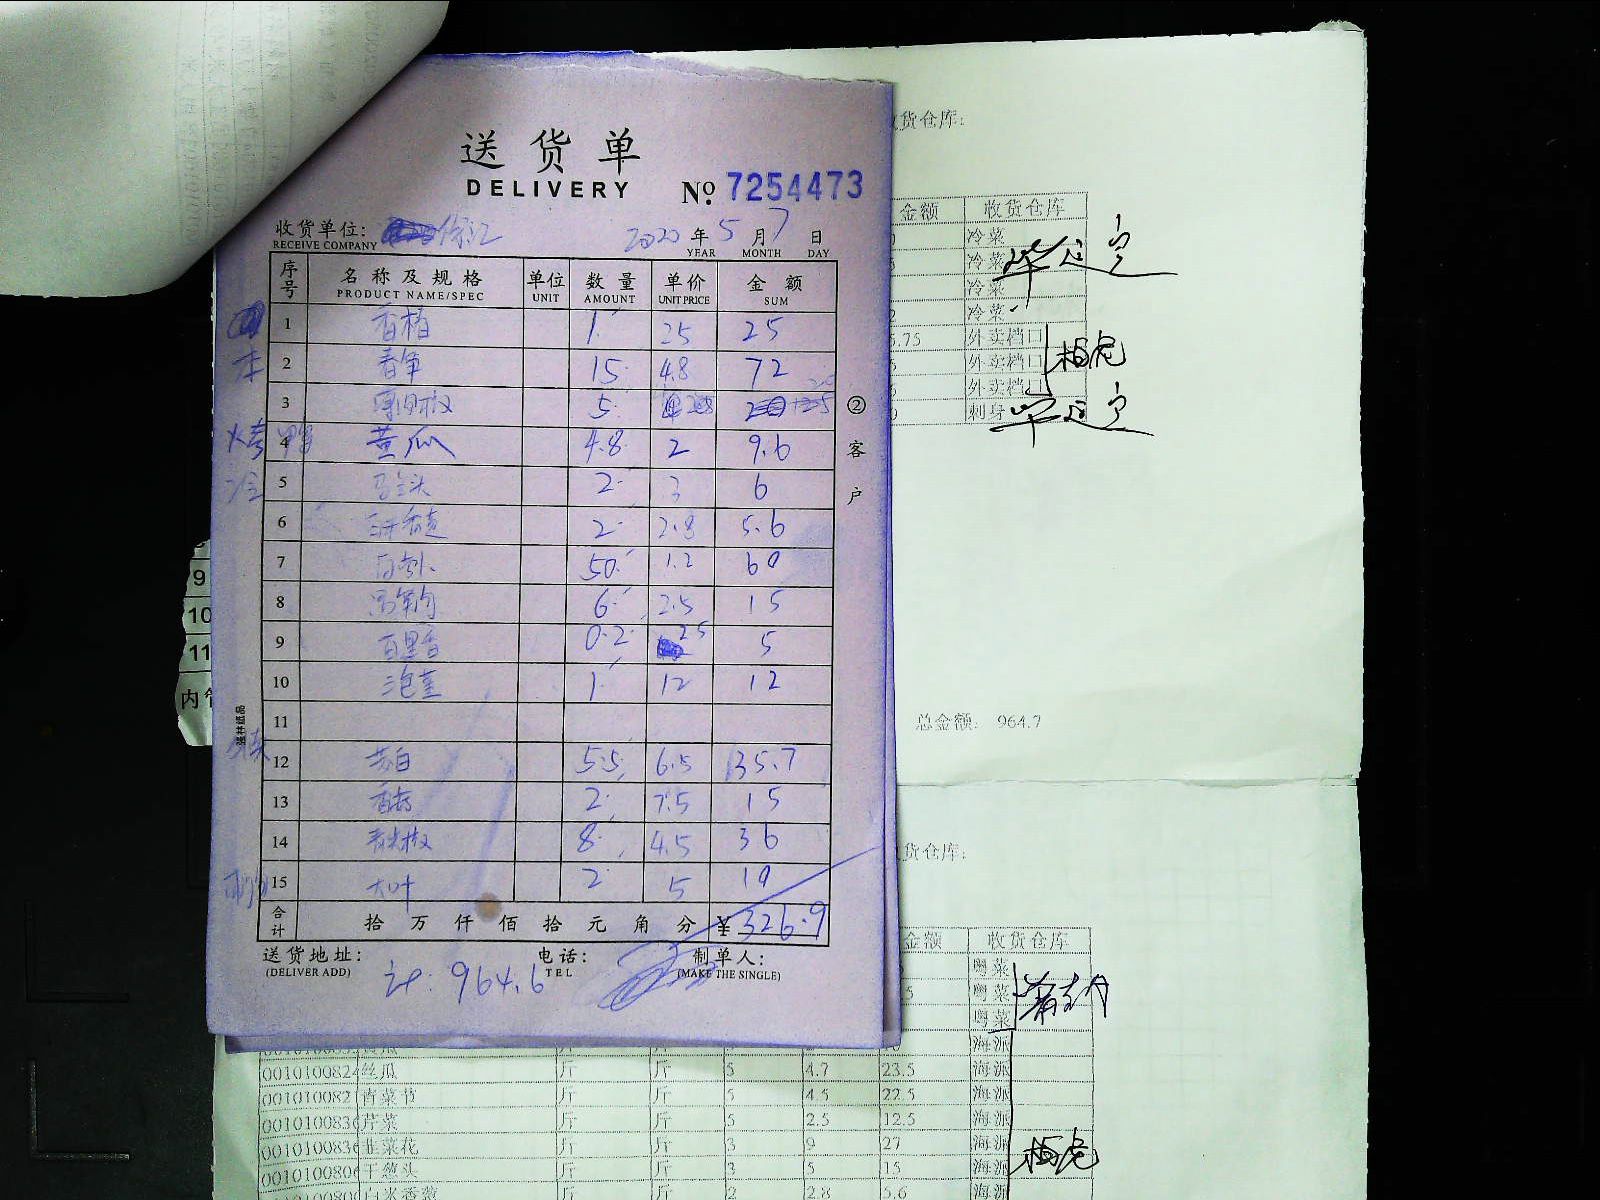 送货单
DELIVERY
No 7254473
收货单位: 徐汇 2020 年 5 月 7 日
RECEIVE COMPANY YEAR MONTH DAY
序号 名称及规格 单位 数量 单价 金额
PRODUCT NAME/SPEC UNIT AMOUNT UNIT PRICE SUM
1 香椿 1 25 25
2 春笋 15 4.8 72
3 5
本
烤鸭
4 黄瓜 4.8 2 9.6
冷
5 马兰头 2 3 6
6 2 2.8 5.6
7 50 1.2 60
8 6 2.5 15
9 百里香 0.2 25 5
10 1 12 12
11
12 茭白 5.5 6.5 35.7
13 香菇 2 7.5 15
14 青尖椒 8 4.5 36
15 大叶 2 5 10
合计 拾 万 仟 佰 拾 元 角 分 ¥ 326.9
送货地址: 电话: 制单人:
(DELIVER ADD) TEL (MAKE THE SINGLE)
计: 964.6
②客户
强林纸品
9
10
11
货仓库:
金额 收货仓库
冷菜
冷菜
冷菜
冷菜
5.75 外卖档口
外卖档口
外卖档口
刺身
总金额: 964.7
货仓库:
金额 收货仓库
粤菜
粤菜
粤菜
海派
001010082 丝瓜 斤 斤 5 4.7 23.5 海派
001010082 青菜节 斤 斤 5 4.5 22.5 海派
001010083 芹菜 斤 斤 5 2.5 12.5 海派
001010083 韭菜花 斤 斤 3 9 27 海派
001010080 干葱头 斤 斤 3 5 15 海派
斤 斤 2 2.8 5.6 海派